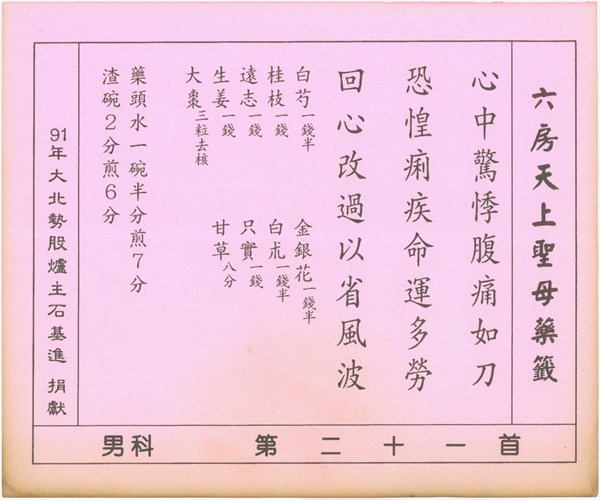 六房天上聖母藥籤
心中驚悸腹痛如刀
恐惶痢疾命運多勞
回心改過以省風波
白芍一錢半 金銀花一錢半
桂枝一錢 白朮一錢半
遠志一錢 只實一錢
生姜一錢 甘草八分
大棗三粒去核
藥頭水一碗半分煎7分
渣碗2分煎6分
91年大北勢股爐主石基進 捐獻
男科 第二十一首